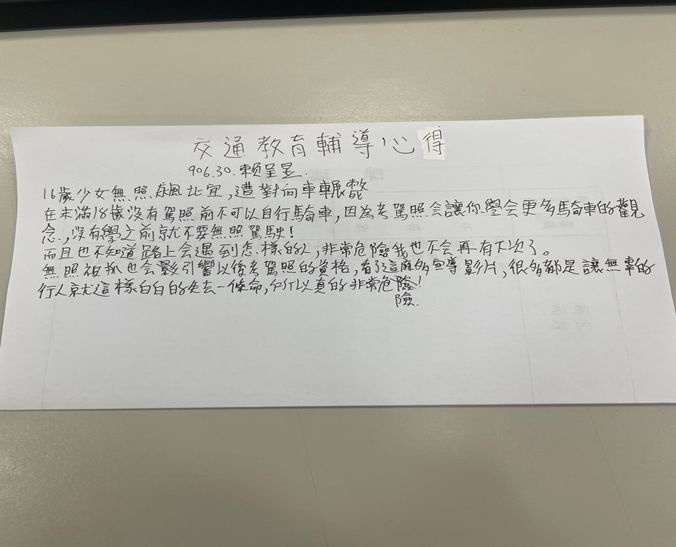 交通教育輔導心得
906.30.賴呈昱.
16歲少女無照飆北宜,遭對向車輾斃
在未滿18歲没有駕照前不可以自行騎車,因為考駕照会讓你學会更多騎車的觀
念.,没有學之前就不要無照駕駛!
而且也不知道路上会遇到怎樣的人,非常危險我也不会再有下次了。
無照被抓也会影引響以後考駕照的資格,看了這麼多宣導影片,很多都是讓無辜的
行人就這樣白白的失去一條命,所以真的非常危險!
險.